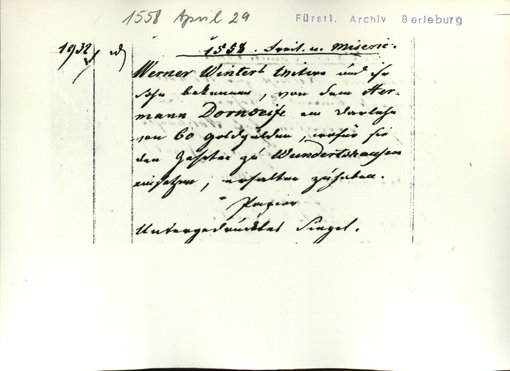 1558 April 29
Fürstl. Archiv Berleburg
1932
1558. Freit. n. Miseric.
Werner Winters Wittwe und ihr
Sohn bekennen, von dem Her-
mann Dornseife ein Darlehn
von 60 Goldgulden, wofür sie
den Zehnten zu Wundertshausen
einsetzen, erhalten zu haben.
Papier
Untergedrücktes Siegel.